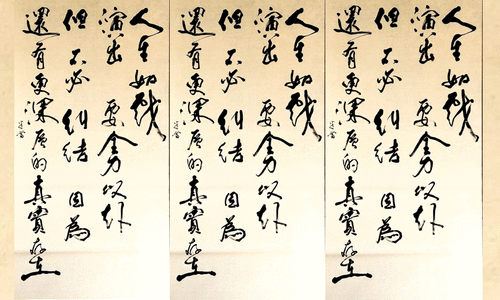 人生如戲
演出 要全力以赴
但不必糾結 因為
還有更深廣的真實存在
人生如戲
演出 要全力以赴
但不必糾結 因為
還有更深廣的真實存在
人生如戲
演出 要全力以赴
但不必糾結 因為
還有更深廣的真實存在